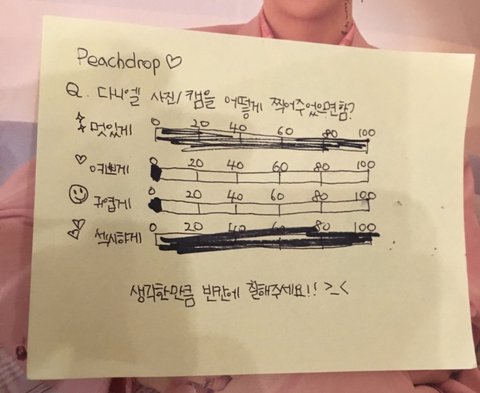 Peachdrop ♡
Q. 다니엘 사진/캠을 어떻게 찍어주었으면함?
멋있게 0 20 40 60 80 100
♡ 예쁘게 0 20 40 60 80 100
☺ 귀엽게 0 20 40 60 80 100
섹시하게 0 20 40 60 80 100
생각한만큼 빈칸에 칠해주세요!! >_<